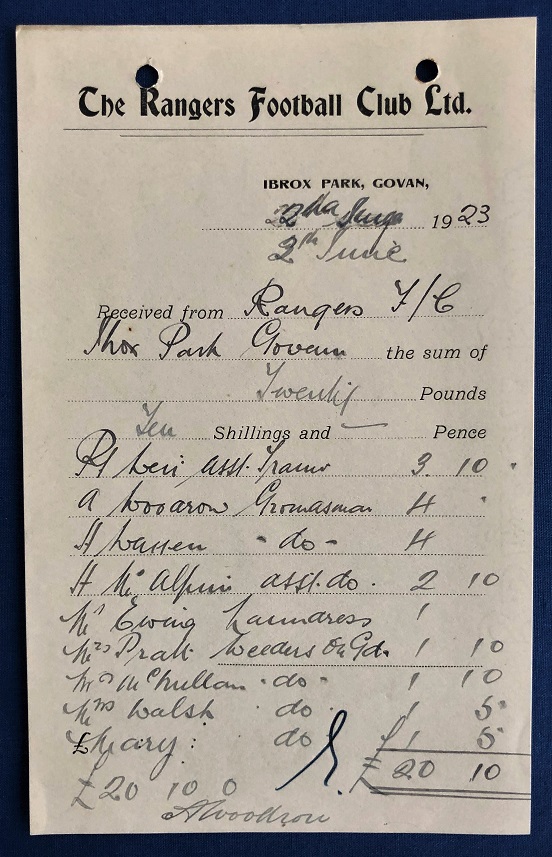 The Rangers Football Club Ltd.
IBROX PARK, GOVAN,
1923
2th June
Received from Rangers F/C
Ibrox Park Govan the sum of
Twenty Pounds
Ten Shillings and — Pence
asst. Trainr 3. 10 .
A Woodrow Groundsman 4 .
H - do - 4
H McAlpine asst. do. 2 10
Ewing Laundress 1
Mrs Pratt Weeders on Gd. 1 10
Mrs McMillan - do - 1 10
Mrs Walsh do 1 5
Mary : do 1 5
£20 10
£20 10 0
A Woodrow